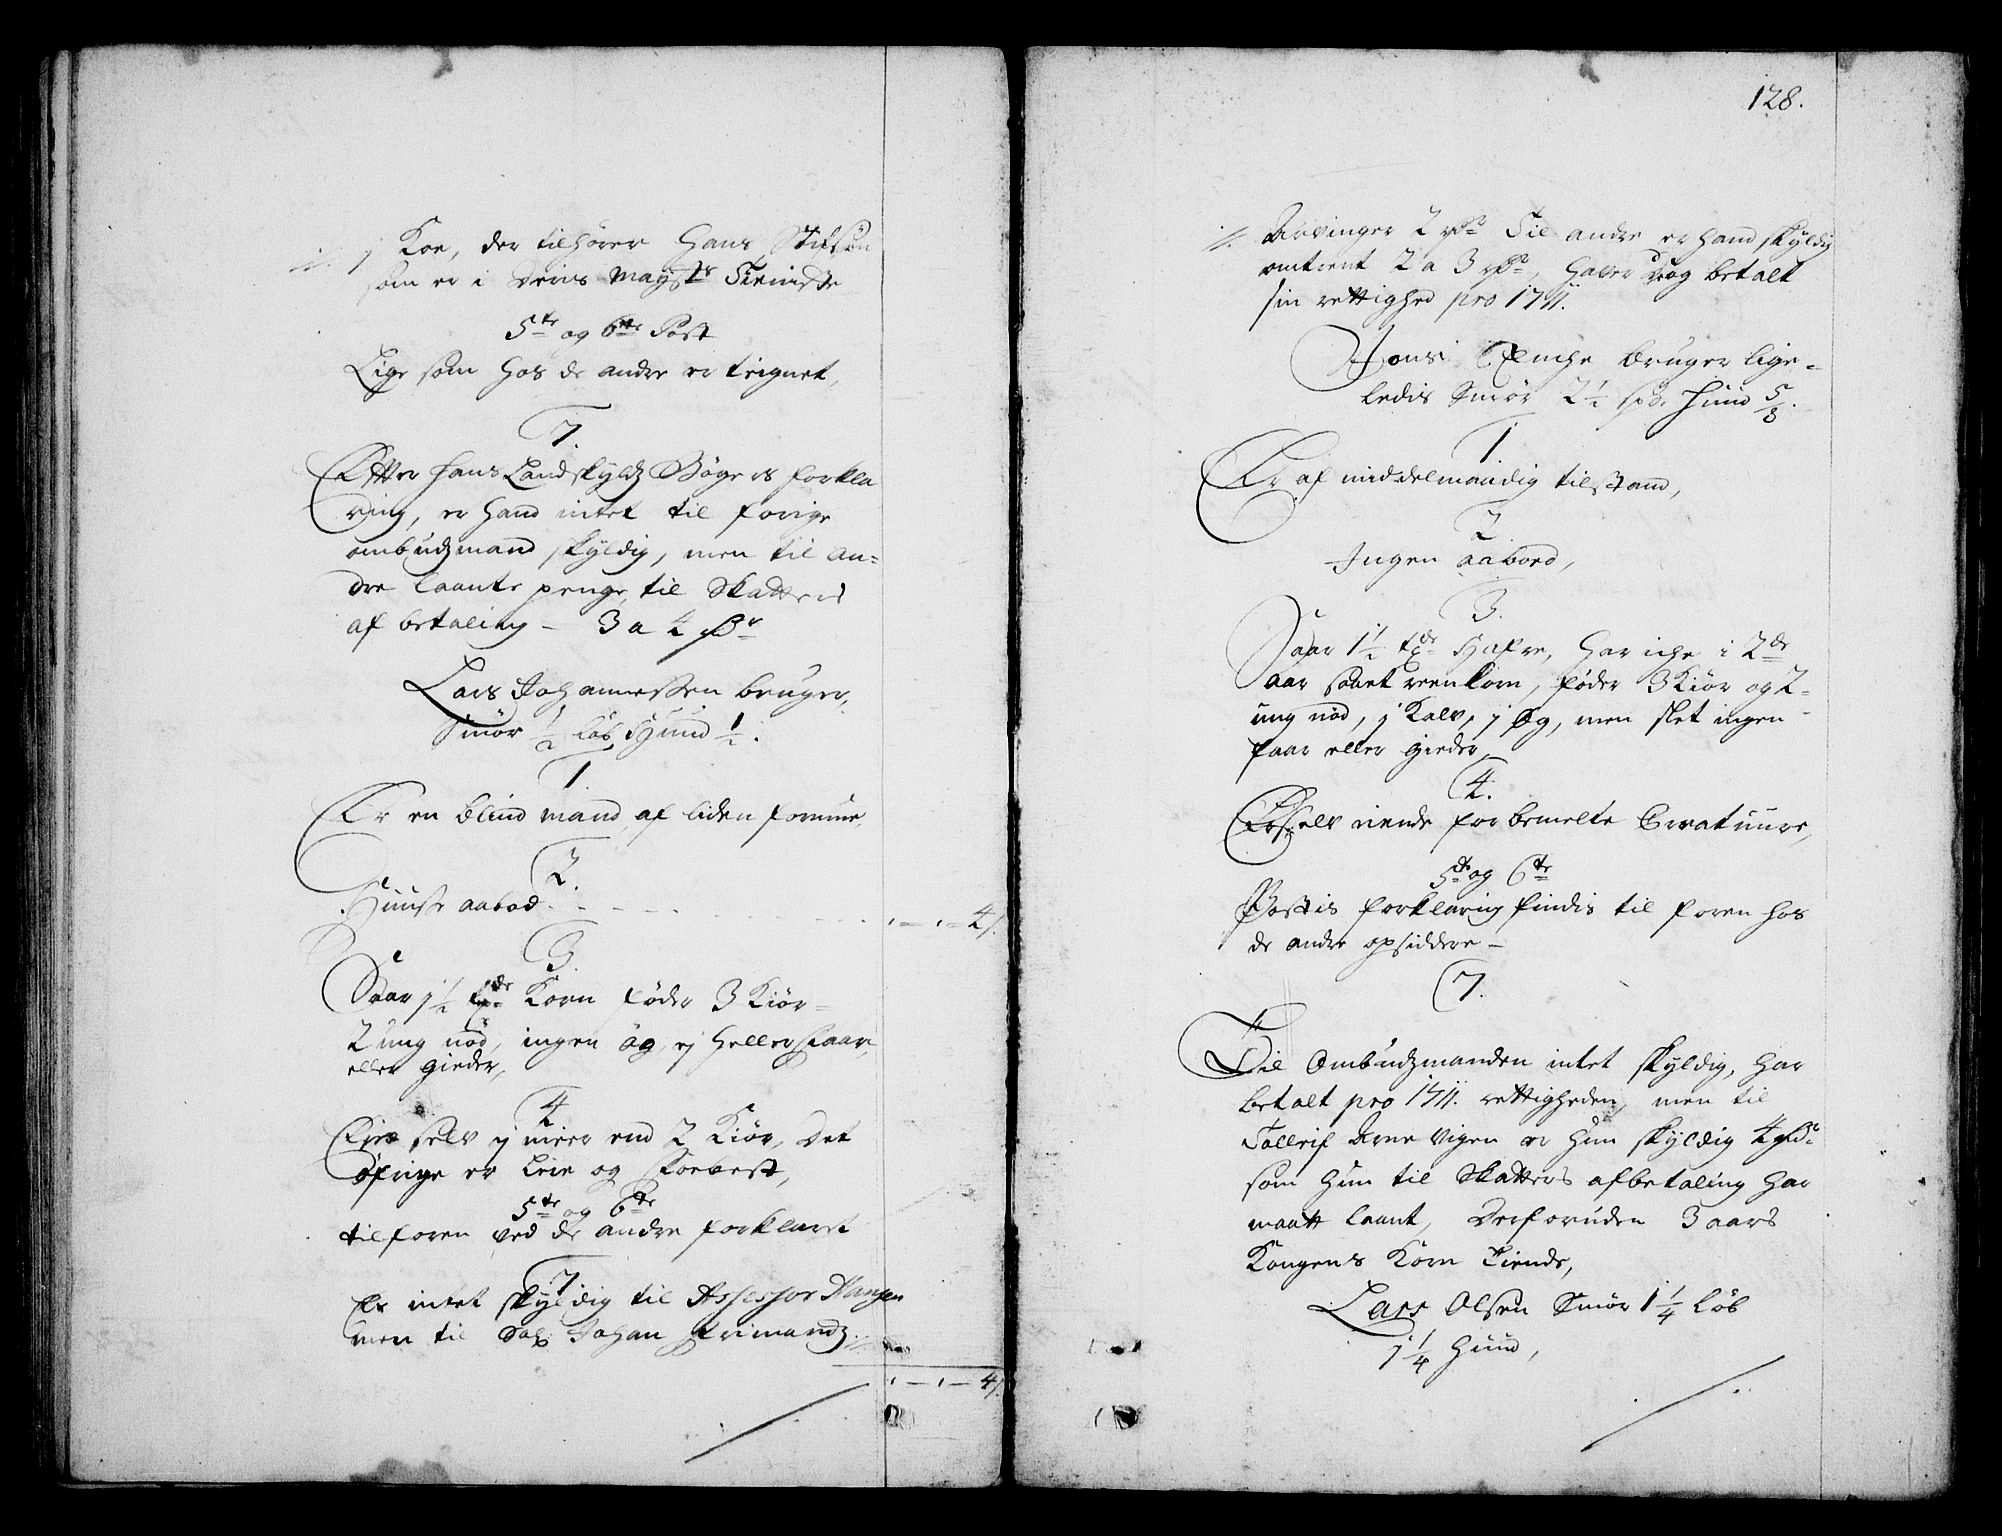 1 Koe, der tilhører Hans Stifsøn
som er i Deris Mayts Tienniste
5te og 6te Post
Lige som hos de andre er teignet,
7.
Efter hans Landskyldz Bøgers forkla
ring, er hand intet til forige
ombudzmand skyldig, men til an=
dre laante penge, til Skatters
af betaling - 3 a 4 rdr
Lars Johannessen bruger,
Smør 1/2 løb Huud 1/2.
1
Er en blind mand, af liden formue,
2.
Huuse aabod - - - 1 - 1 - 4 s.
3.
Saar 1 1/2 tde Korn føder 3 Kiør=
2 ung nød, ingen øg, ej heller faar,
eller gieder,
4
Ejer selv ej meer end 2 Kiør, det
øfrige er Leie og foerbest,
5te og 6te
tilforen ved de andre forklaret
7
Er intet skyldig til Assessor Hansen
men til Sal: Johan Frimandz
1 - 1 - 4 s.
128.
Arvinger 2 rdr Til andre er hand skyldig
omtrent 2 a 3 rdr, haver dog betalt
sin rettighed pro 1711.
Jonsi Enche bruger lige=
ledis Smør 2 1/2 spd: huud 5/8.
1
Er af middelmaadig tilstand,
2
Ingen aabord,
3.
Saar 1 1/2 tde Hafre, har iche i 2de
aar saaet reen korn, føder 3 Kiør og 2=
ung nød, 1 Kalv, 1 Øg, men slet ingen
faar eller gieder,
4.
Er selv eiende forbemelte Creatuure,
5te og 6te
Postis forklaring findis til foren hos
de andre opsiddere -
7.
Til Ombudzmanden intet skyldig, har
betalt pro 1711. rettigheden, men til
Tolleif Arne Vigen er hun skyldig 4 rdr
som hun til Skatters afbetaling har
maatt laant, Derforuden 3 aars
Kongens Korn Tiende,
Lars Olsen Smør 1 1/4 Løb
1 1/4 Huud,